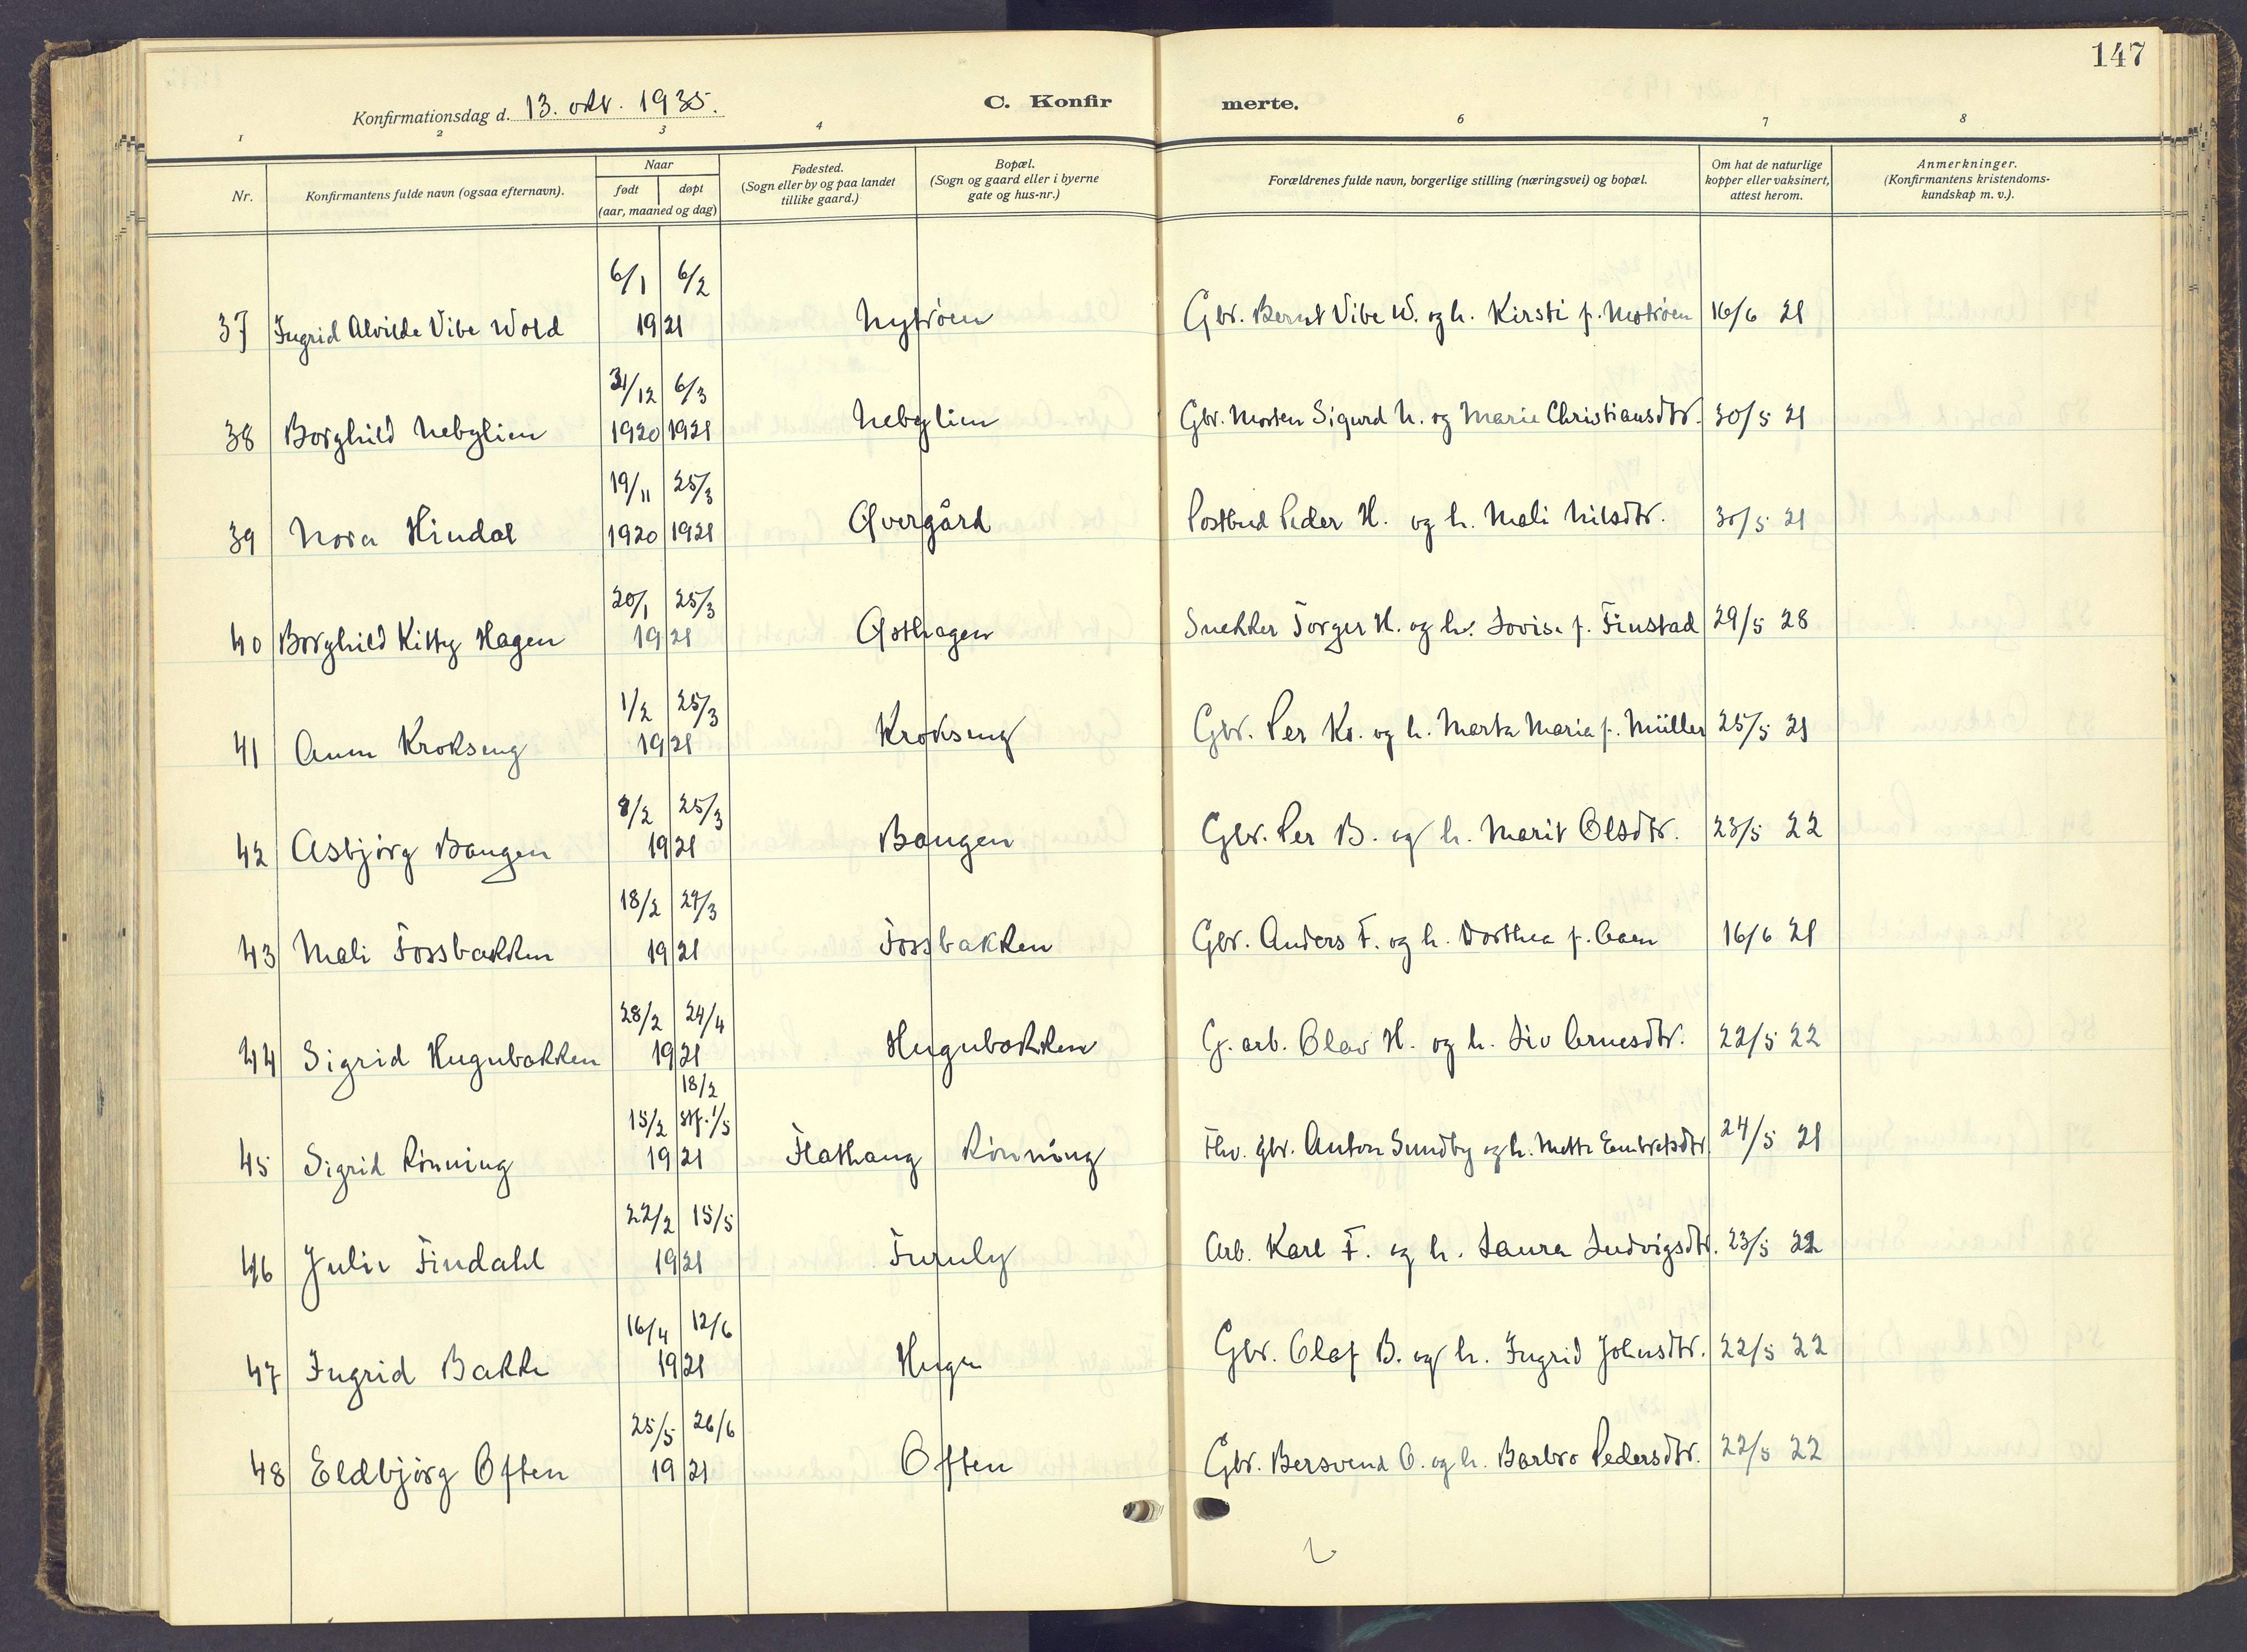 147
Konfirmationsdag d. 13. okt. 1935.
C. Konfir merte.
1 2 3 4 6 7 8
Nr.
Konfirmantens fulde navn (ogsaa efternavn).
Naar
født døpt
(aar, maaned og dag)
Fødested.
(Sogn eller by og paa landet
tillike gaard.)
Bopæl.
(Sogn og gaard eller i byerne
gate og hus-nr.)
Forældrenes fulde navn, borgerlige stilling (næringsvei) og bopæl.
Om hat de naturlige
kopper eller vaksinert,
attest herom.
Anmerkninger.
(Konfirmantens kristendoms-
kundskap m. v.).
6/1 6/2
37 Ingrid Alvilde Vibe Wold 1921 Nytrøen Gbr. Bernt Vibe W. og h. Kirsti f. Motrøen 16/6 21
31/12 6/3
38 Borghild Nebylien 1920 1921 Nebylien Gbr. Morten Sigurd N. og Marie Christiansdtr. 30/5 21
19/11 25/3
39 Nora Hindal 1920 1921 Øvergård Postbud Peder H. og h. Mali Nilsdtr. 30/5 21
20/1 25/3
40 Borghild Kitty Hagen 1921 Østhagen Snekker Torger H. og h. Lovise f. Finstad 29/5 28
1/2 25/3
41 Anna Krokseng 1921 Krokseng Gbr. Per Kr. og h. Marta Maria f. Müller 25/5 21
8/2 25/3
42 Asbjørg Bangen 1921 Bangen Gbr. Per B. og h. Marit Olsdtr. 23/5 22
18/2 27/3
43 Mali Fossbakken 1921 Fossbakken Gbr. Anders F. og h. Dorthea f. Aaen 16/6 21
28/2 24/4
44 Sigrid Hugubakken 1921 Hugubakken G. arb. Olav H. og h. Liv Arnesdtr. 22/5 22
18/2
15/2 stf. 1/5
45 Sigrid Rønning 1921 Flathaug Rønning Fhv. gbr. Anton Sundby og h. Mette Embretsdtr. 24/5 21
22/2 15/5
46 Julie Findahl 1921 Furuly Arb. Karl F. og h. Laura Ludvigsdtr. 23/5 22
16/4 12/6
47 Ingrid Bakke 1921 Hugu Gbr. Olaf B. og h. Ingrid Johnsdtr. 22/5 22
25/5 26/6
48 Eldbjørg Øften 1921 Øften Gbr. Bersvend Ø. og h. Barbro Pedersdtr. 22/5 22